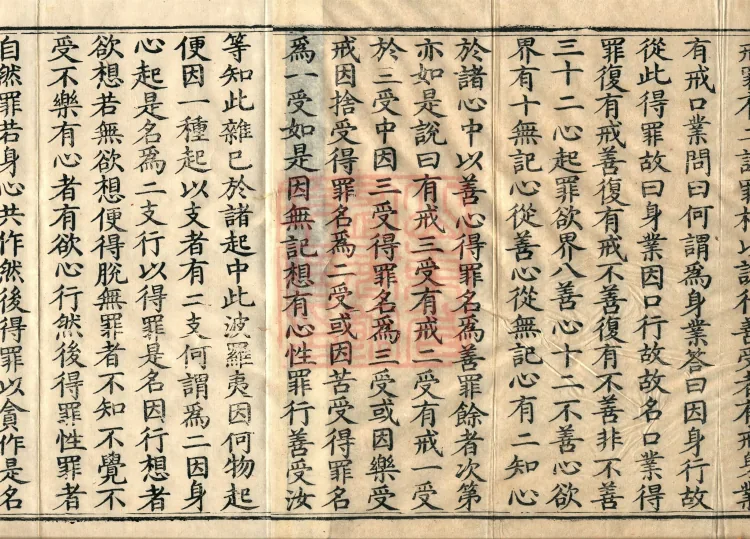 得善受有戒身業
有戒口業問曰何謂為身業答曰因身行故
從此得罪故曰身業因口行故故名口業得
罪復有戒善復有戒不善復有不善非不善
三十二心起罪欲界八善心十二不善心欲
界有十無記心從善心從無記心有二知心
於諸心中以善心得罪名為善罪餘者次第
亦如是說曰有戒三受有戒二受有戒一受
於三受中因三受得罪名為三受或因樂受
戒因捨受得罪名為二受或因苦受得罪名
為一受如是因無記想有心性罪行善受汝
等知此雜已於諸起中此波羅夷因何物起
便因一種起以支者有二支何謂為二因身
心起是名為二支行以得罪是名因行想者
欲想若無欲想便得脫無罪者不知不覺不
受不樂有心者有欲心行然後得罪性罪者
自然罪若身心共作然後得罪以貪作是名